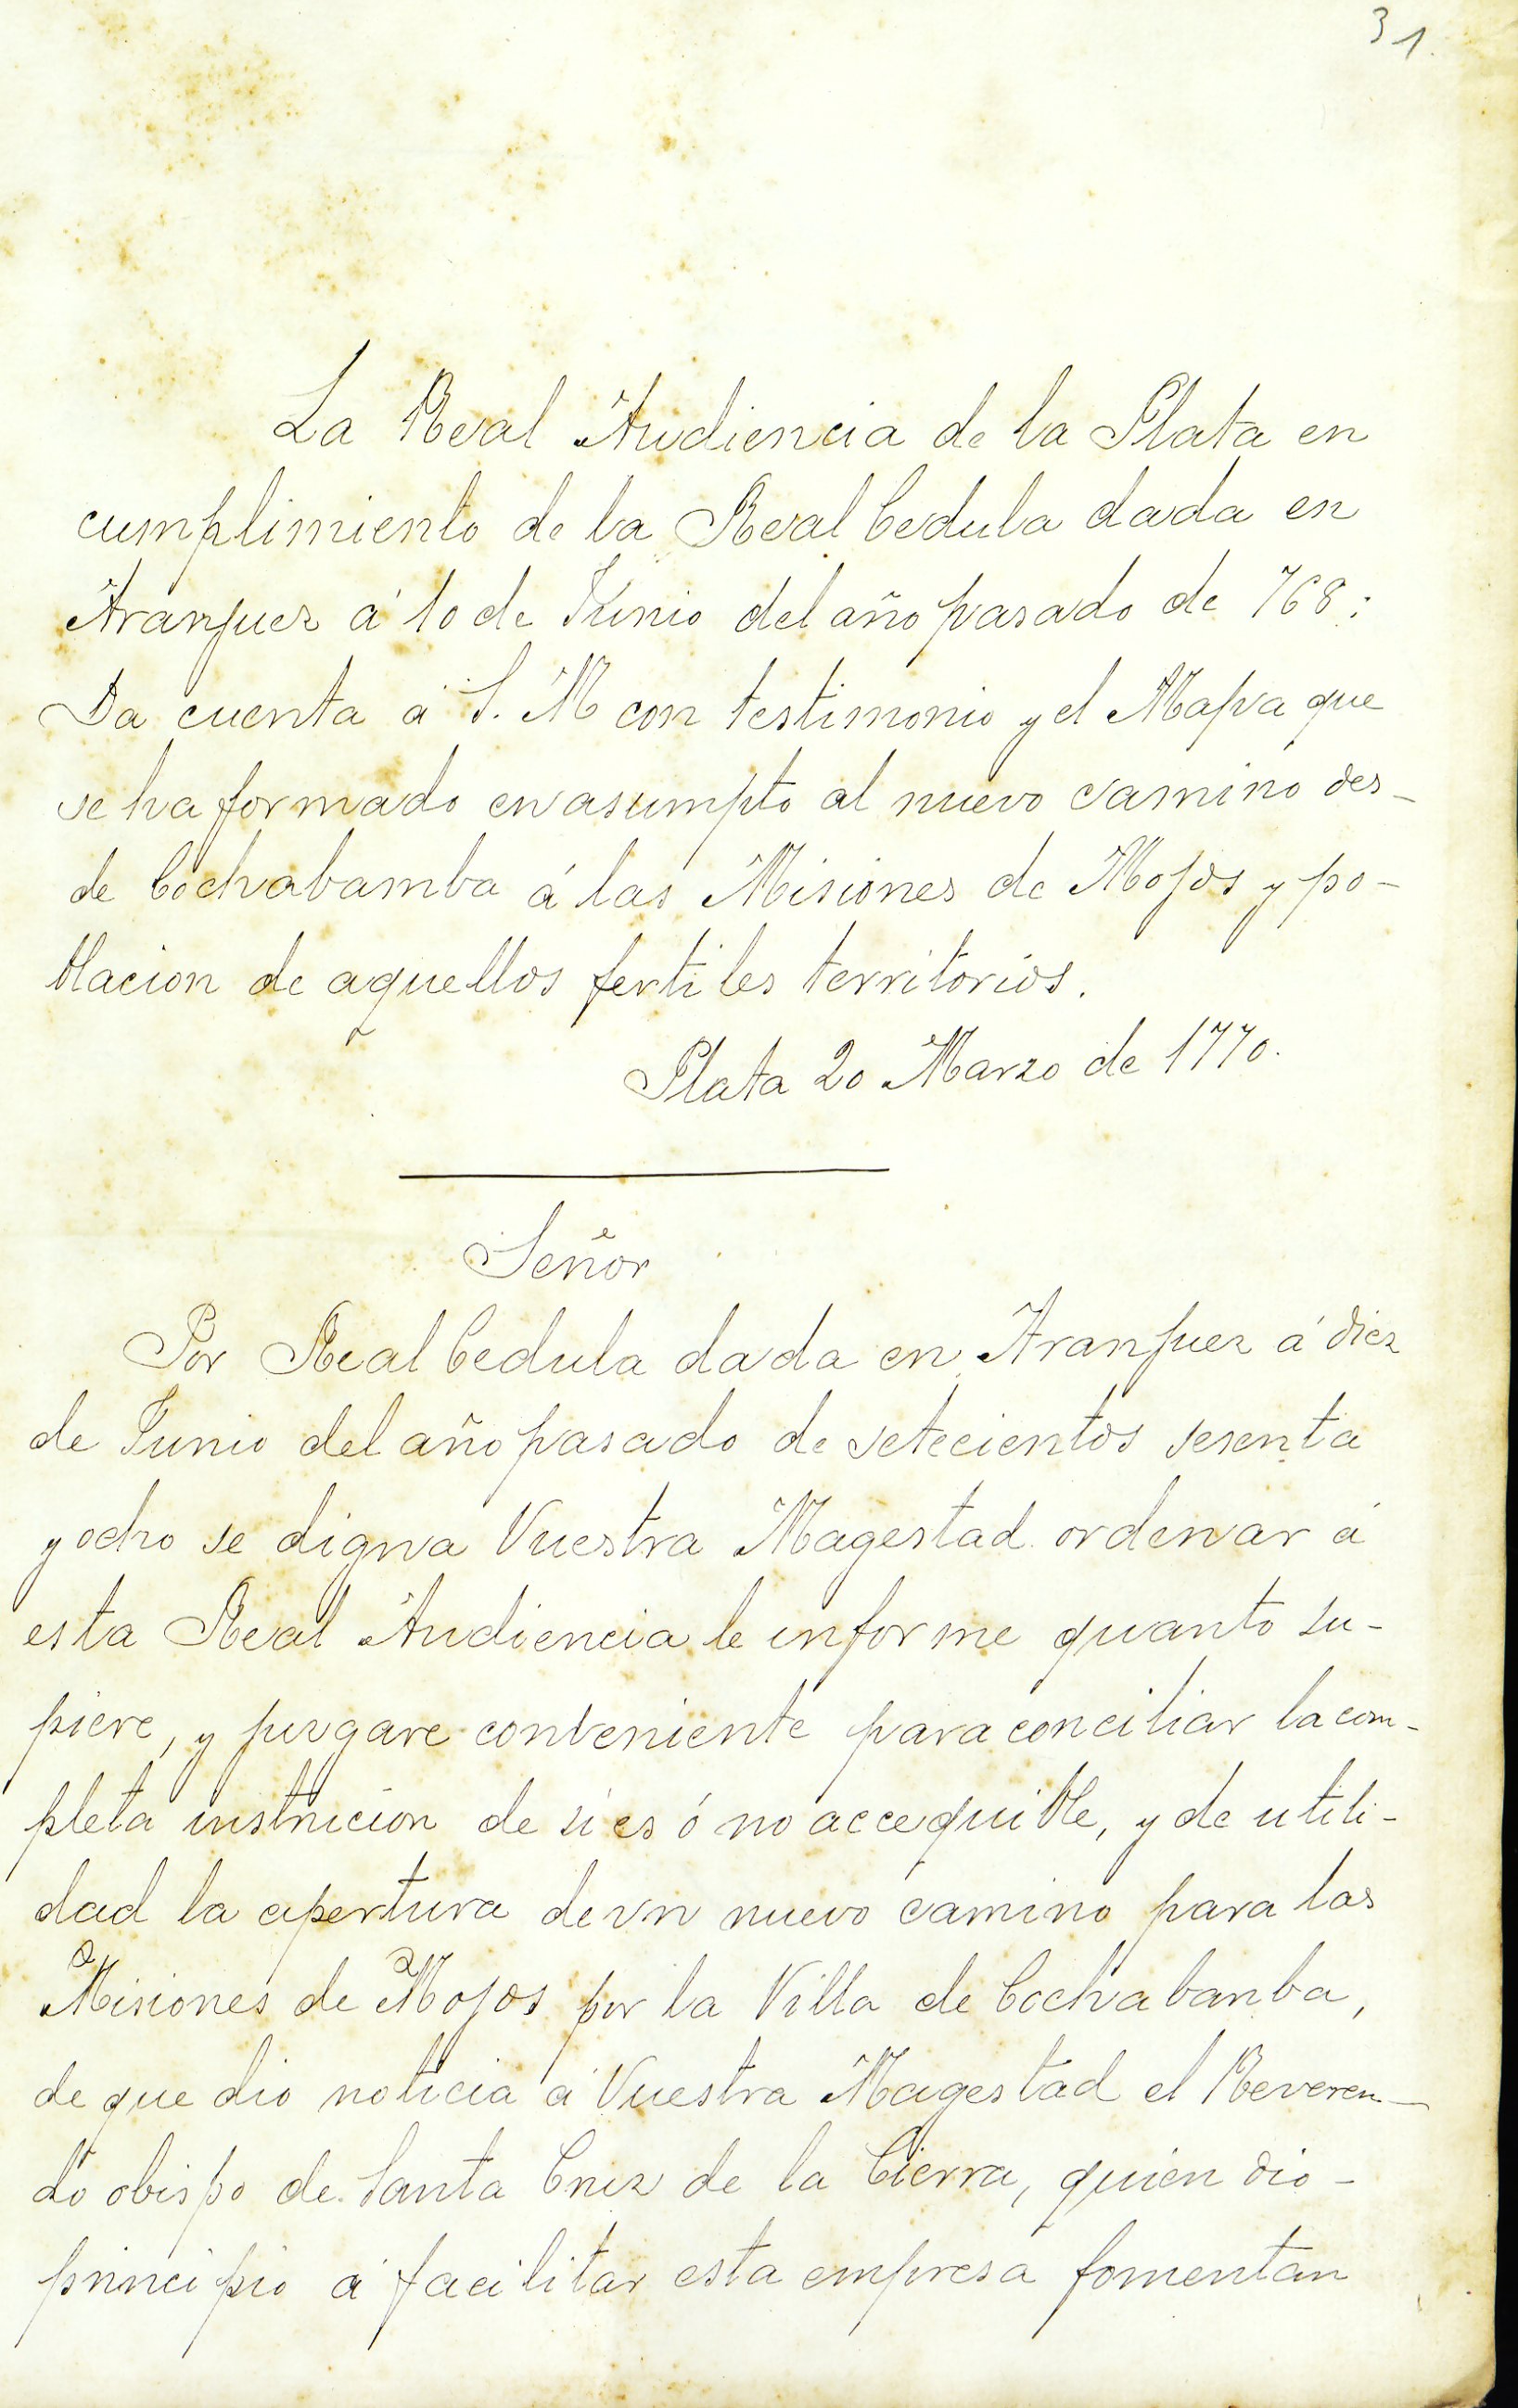 31.
La Real Audiencia de la Plata en
cumplimiento de la Real Cedula dada en
Aranjuez á 10 de Junio del año pasado de 768:
Da cuenta á S. M con testimonio y el Mapa que
se ha formado en asumpto al nuevo camino des-
de Cochabamba á las Misiones de Mojos y po-
blacion de aquellos fertiles territorios.
Plata 20 Marzo de 1770.
Señor
Por Real Cedula dada en Aranjuez á diez
de Junio del año pasado de setecientos sesenta
y ocho se digna Vuestra Magestad ordenar á
esta Real Audiencia le informe quanto su-
piere, y jusgare conveniente para conciliar la com-
pleta instrucion de si es ó no accequible, y de utili-
dad la apertura de vn nuevo camino para las
Misiones de Mojos por la Villa de Cochabanba,
de que dio noticia á Vuestra Magestad el Reveren-
do obispo de Santa Cruz de la Cierra, quien dio-
principio á facilitar esta empresa fomentan